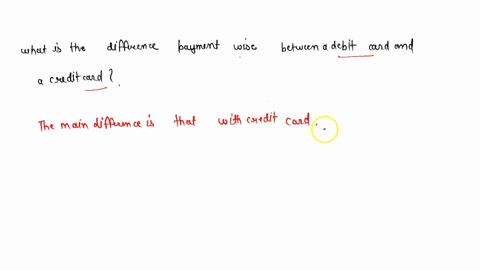 what is the difference payment wise between a debit card and
a credit card?
The main difference is that with credit card.